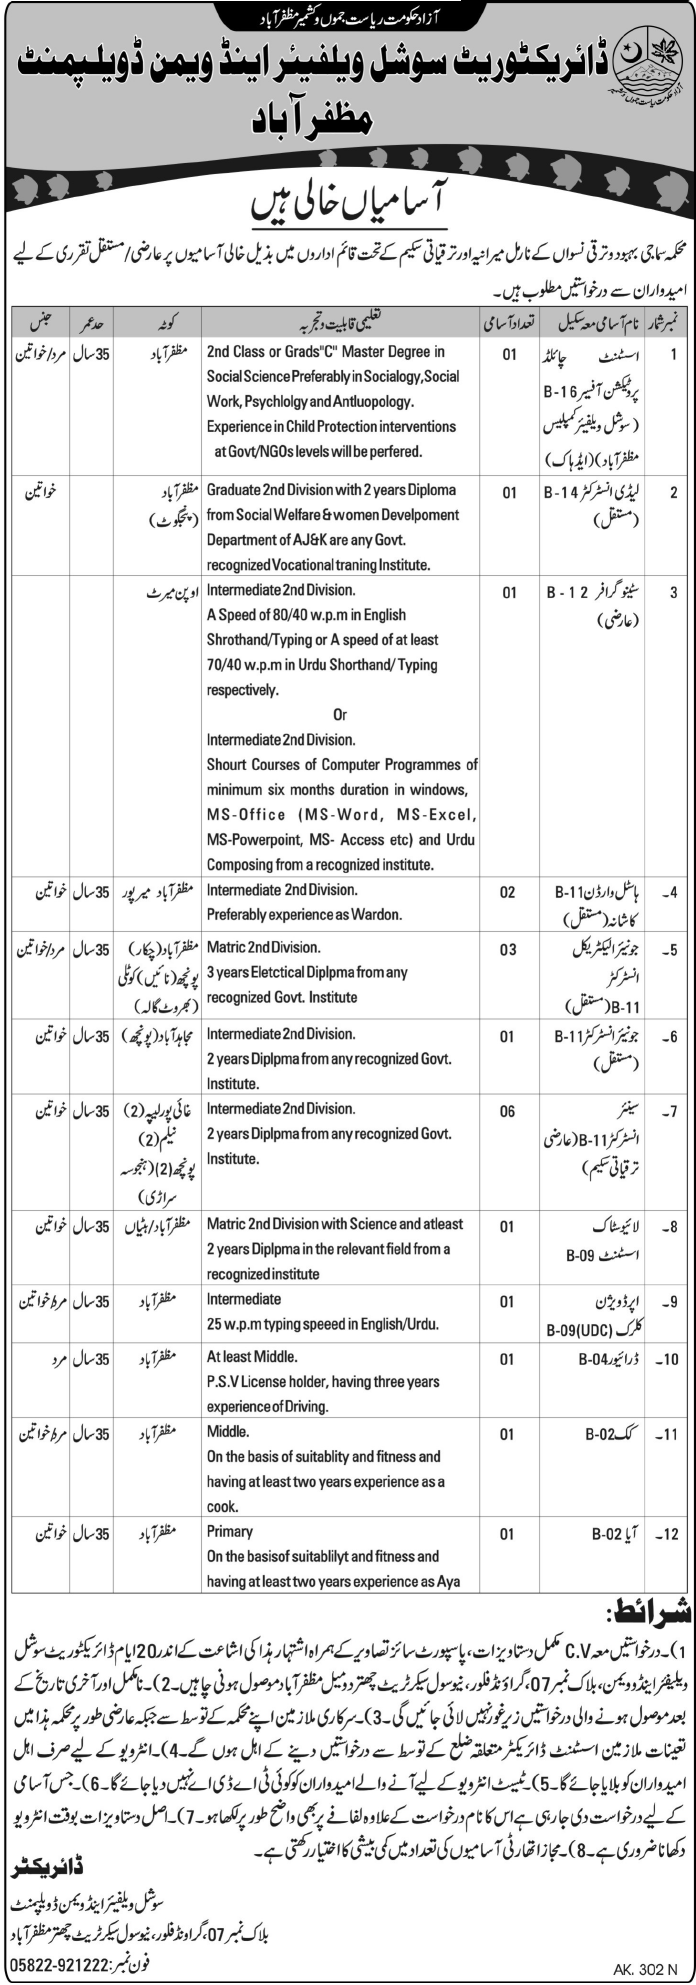 آزاد حکومت ریاست جموں و کشمیر مظفرآباد
ڈائریکٹوریٹ سوشل ویلفیئر اینڈ ویمن ڈویلپمنٹ
مظفرآباد
آزاد حکومت ریاست جموں و کشمیر
آسامیاں خالی ہیں
محکمہ سماجی بہبود و ترقی نسواں کے نارمل میزانیہ اور ترقیاتی سکیم کے تحت قائم اداروں میں بذیل خالی آسامیوں پر عارضی/مستقل تقرری کے لیے
امیدواران سے درخواستیں مطلوب ہیں۔
نمبر شمار نام آسامی معہ سکیل تعداد آسامی تعلیمی قابلیت و تجربہ کوٹہ حد عمر جنس
1 اسسٹنٹ چائلڈ
پروٹیکشن آفیسر B-16
(سوشل ویلفیئر کمپلیس
مظفرآباد) (ایڈہاک)
01
2nd Class or Grads"C" Master Degree in
Social Science Preferably in Socialogy,Social
Work, Psychlolgy and Antluopology.
Experience in Child Protection interventions
at Govt/NGOs levels will be perfered.
مظفرآباد
35سال
مرد/خواتین
2 لیڈی انسٹرکٹر B-14
(مستقل)
01
Graduate 2nd Division with 2 years Diploma
from Social Welfare & women Develpoment
Department of AJ&K are any Govt.
recognized Vocational traning Institute.
مظفرآباد
(پنجکوٹ)
خواتین
3 سٹینوگرافر B-12
(عارضی)
01
Intermediate 2nd Division.
A Speed of 80/40 w.p.m in English
Shrothand/Typing or A speed of at least
70/40 w.p.m in Urdu Shorthand/ Typing
respectively.
Or
Intermediate 2nd Division.
Shourt Courses of Computer Programmes of
minimum six months duration in windows,
MS-Office (MS-Word, MS-Excel,
MS-Powerpoint, MS- Access etc) and Urdu
Composing from a recognized institute.
اوپن میرٹ
4۔ ہاسٹل وارڈن B-11
کاشانہ (مستقل)
02
Intermediate 2nd Division.
Preferably experience as Wardon.
مظفرآباد میرپور
35سال
خواتین
5۔ جونیئر الیکٹریکل
انسٹرکٹر
B-11(مستقل)
03
Matric 2nd Division.
3 years Eletctical Diplpma from any
recognized Govt. Institute
مظفرآباد (چکار)
پونچھ (نائیں) کوٹلی
(بھروٹ گالہ)
35سال
مرد/خواتین
6۔ جونیئر انسٹرکٹر B-11
(مستقل)
01
Intermediate 2nd Division.
2 years Diplpma from any recognized Govt.
Institute.
مجاہد آباد (پونچھ)
35سال
خواتین
7۔ سینئر
انسٹرکٹر B-11 (عارضی
ترقیاتی سکیم)
06
Intermediate 2nd Division.
2 years Diplpma from any recognized Govt.
Institute.
لیپہ (2)
نیلم (2)
پونچھ (2) (ہنجوسہ
سراڑی)
35سال
خواتین
8۔ لائیوسٹاک
اسسٹنٹ B-09
01
Matric 2nd Division with Science and atleast
2 years Diplpma in the relevant field from a
recognized institute
مظفرآباد/ہٹیاں
35سال
خواتین
9۔ اپر ڈویژن
کلرک B-09(UDC)
01
Intermediate
25 w.p.m typing speeed in English/Urdu.
مظفرآباد
35سال
مرد/خواتین
10۔ ڈرائیور B-04
01
At least Middle.
P.S.V License holder, having three years
experience of Driving.
مظفرآباد
35سال
مرد
11۔ کک B-02
01
Middle.
On the basis of suitablity and fitness and
having at least two years experience as a
cook.
مظفرآباد
35سال
مرد/خواتین
12۔ آیا B-02
01
Primary
On the basisof suitablilyt and fitness and
having at least two years experience as Aya
مظفرآباد
35سال
خواتین
شرائط:
1)۔ درخواستیں معہ C.V مکمل دستاویزات، پاسپورٹ سائز تصاویر کے ہمراہ اشتہار ہذا کی اشاعت کے اندر 20 ایام ڈائریکٹوریٹ سوشل
ویلفیئر اینڈ ویمن، بلاک نمبر 07، گراؤنڈ فلور، نیو سول سیکرٹریٹ چھتر دومیل مظفرآباد موصول ہونی چاہیں۔ 2)۔ نامکمل اور آخری تاریخ کے
بعد موصول ہونے والی درخواستیں زیر غور نہیں لائی جائیں گی۔ 3)۔ سرکاری ملازمین اپنے محکمہ کے توسط سے جبکہ عارضی طور پر محکمہ ہذا میں
تعینات ملازمین اسسٹنٹ ڈائریکٹر متعلقہ ضلع کے توسط سے درخواستیں دینے کے اہل ہوں گے۔ 4)۔ انٹرویو کے لیے صرف اہل
امیدواران کو بلایا جائے گا۔ 5)۔ ٹیسٹ انٹرویو کے لیے آنے والے امیدواران کو کوئی ٹی اے ڈی اے نہیں دیا جائے گا۔ 6)۔ جس آسامی
کے لیے درخواست دی جا رہی ہے اس کا نام درخواست کے علاوہ لفافے پر بھی واضح طور پر لکھا ہو۔ 7)۔ اصل دستاویزات بوقت انٹرویو
دکھانا ضروری ہے۔ 8)۔ مجاز اتھارٹی آسامیوں کی تعداد میں کمی بیشی کا اختیار رکھتی ہے۔
ڈائریکٹر
سوشل ویلفیئر اینڈ ویمن ڈویلپمنٹ
بلاک نمبر 07، گراونڈ فلور، نیو سول سیکرٹریٹ چھتر مظفرآباد
فون نمبر: 05822-921222
AK. 302 N